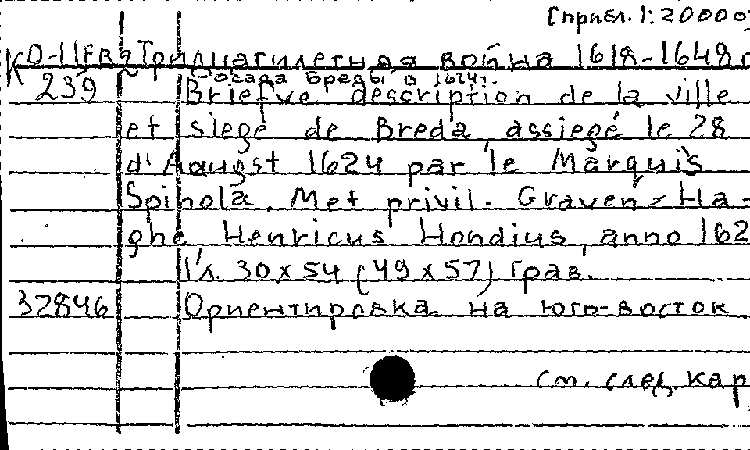 [прибл. 1:20000]
К 0-11FR2 Тридцатилетная война 1618-1648 г
239 Осада Бреды в 1624г.
Briefve description de la ville
et siege de Breda, assiegé le 28
d'Aaugst 1624 par le Marquis
Spinola. Met privil. Graven-Ha-
ghe, Henricus Hondius, anno 162
1 л. 30 x 54 (49 x 57) грав.
32846 Ориентировка на юго-восток
См. след. кар